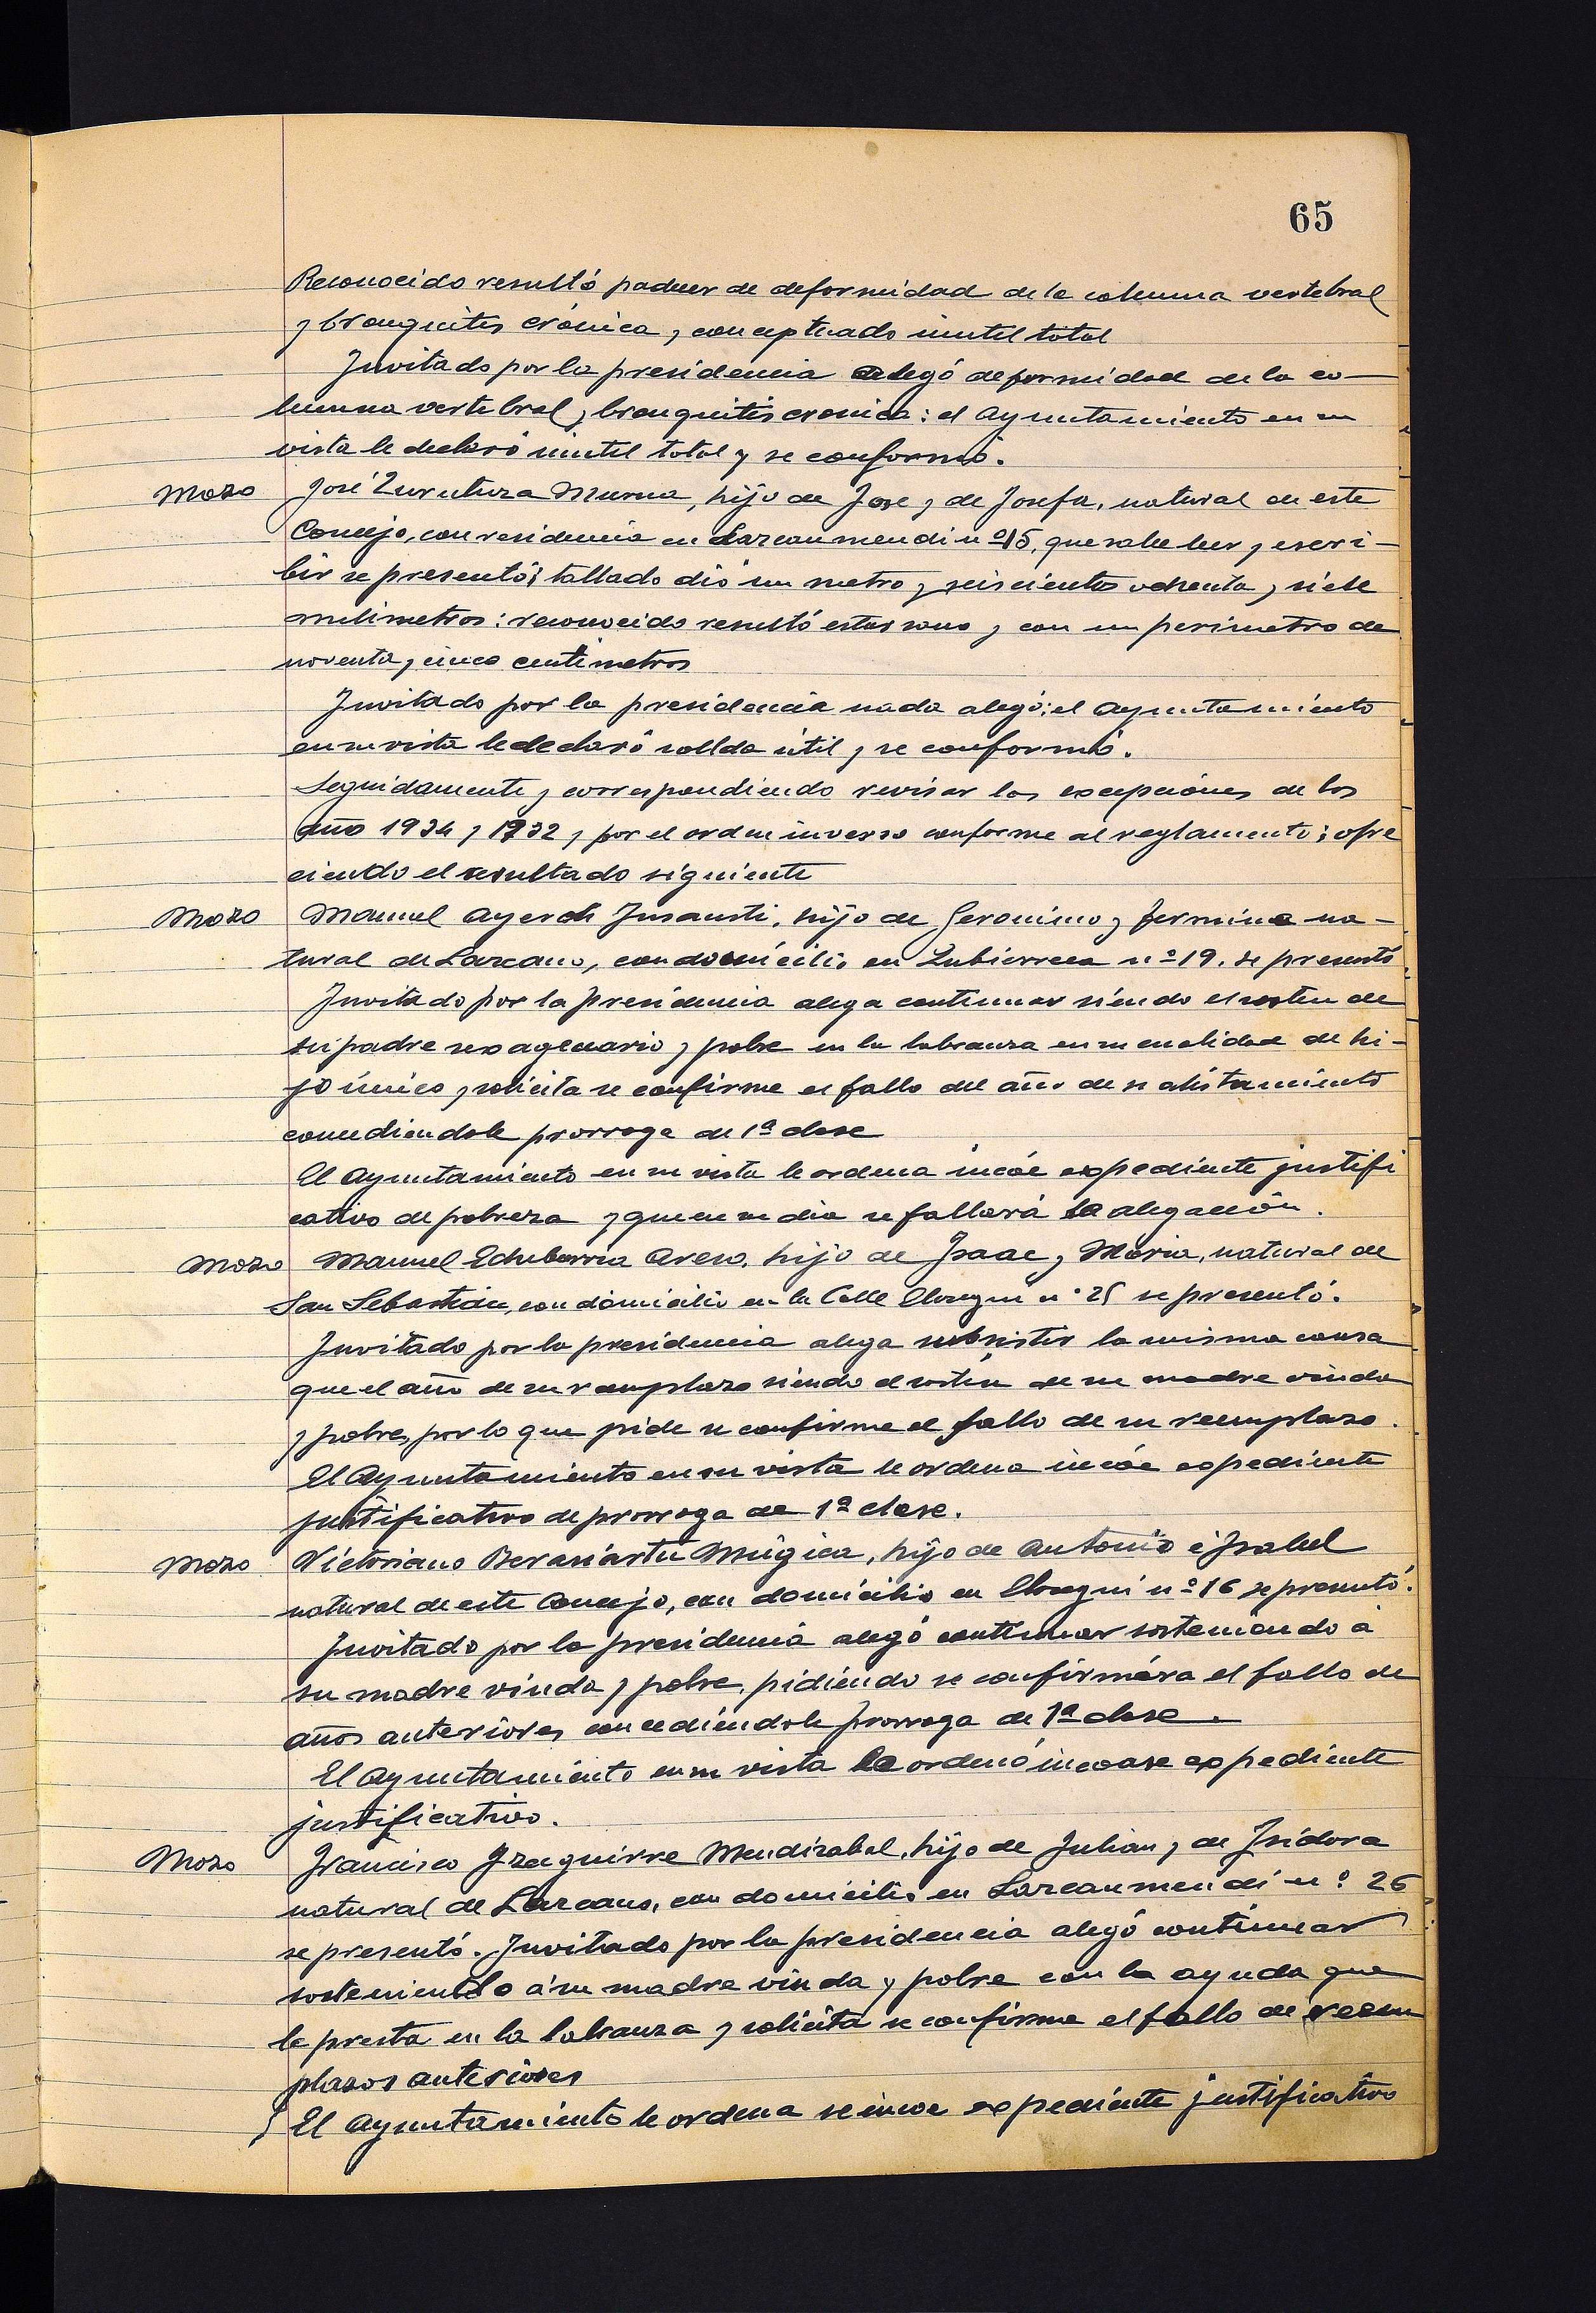 65
Reconocido resultó padecer de deformidad de la columna vertebral
y bronquitis crónica, conceptuado inutil total
Invitado por la presidencia alegó deformidad de la co-
lumna vertebral y bronquitis cronica: el Ayuntamiento en su
vista le declaró inutil total y se conformó.
Mozo José Zurutuza Murua, hijo de Jose y de Josefa, natural de este
Concejo, con residencia en Lazcanmendi nº 15, que sabe leer y escri-
bir se presentó; tallado dió un metro y seiscientos ochenta y siete
milimetros: reconocido resultó estar sano y con un perimetro de
noventa y cinco centimetros
Invitado por la presidencia nada alegó; el Ayuntamiento
en su vista le declaró soldado útil y se conformó.
Seguidamente y correspondiendo revisar las excepciones de los
años 1934 y 1932 y por el orden inverso conforme al reglamento; ofre
ciendo el resultado siguiente
Mozo Manuel Ayerch Insausti, hijo de Geronimo y Fermina na-
tural de Lazcano, con domicilio en Zubierreca nº 19. se presentó
Invitado por la presidencia alega continuar siendo el sosten de
su padre sexagenario y pobre en la labranza en su cualidad de hi-
jo único y solicita se confirme el fallo del año de su alistamiento
concediendole prorroga de 1ª clase
El Ayuntamiento en su vista le ordena incoe expediente justifi
cativo de pobreza y que en su dia se fallará la alegación.
Mozo Manuel Echebarria Areso, hijo de Isaac y Maria, natural de
San Sebastián, con domicilio en la Calle Elosegui nº 25 se presentó.
Invitado por la presidencia alega subsistir la misma causa
que el año de su reemplazo siendo el sostén de su madre viuda
y pobre, por lo que pide se confirme el fallo de su reemplazo.
El Ayuntamiento en su vista le ordena incoe expediente
justificativo de prorroga de 1ª clase.
Mozo Victoriano Berasiartu Múgica, hijo de Antonio é Isabel
natural de este Concejo, con domicilio en Elosegui nº 16 se presentó.
Invitado por la presidencia alegó continuar sosteniendo á
su madre viuda y pobre, pidiendo se confirmára el fallo de
años anteriores concediendole prorroga de 1ª clase.
El Ayuntamiento en su vista le ordenó incoase expediente
justificativo.
Mozo Francisco Izaguirre Mendizabal, hijo de Julian y de Isidora
natural de Lazcano, con domicilio en Lazcanmendi nº 26
se presentó. Invitado por la presidencia alegó continuar
sosteniendo á su madre viuda y pobre con la ayuda que
le presta en la labranza y solicita se confirme el fallo de reem
plazos anteriores
El Ayuntamiento le ordena se incoe expediente justificativo